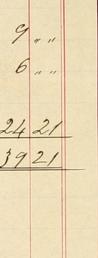 9 " "
6 " "
2421
3921